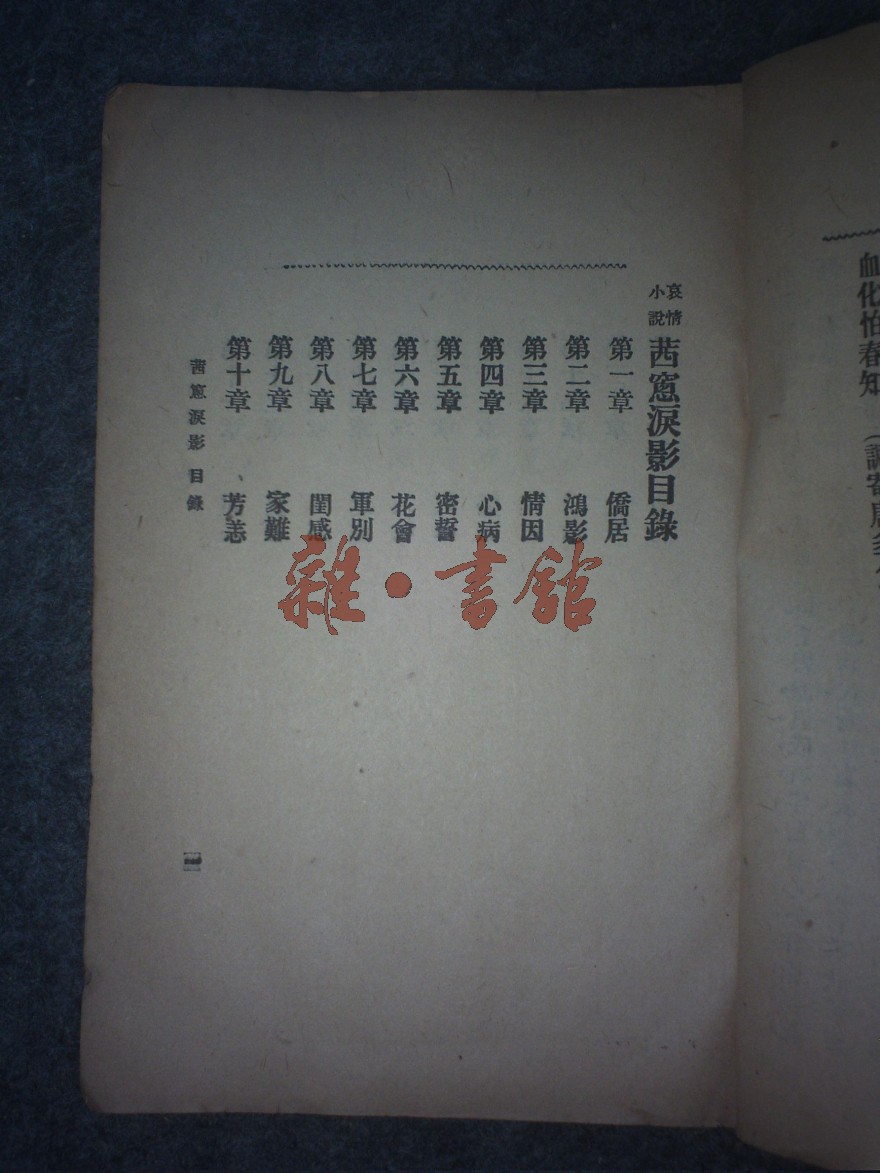 血化怕春知
哀情小說 茜窻淚影目錄
第一章 僑居
第二章 鴻影
第三章 情因
第四章 心病
第五章 密誓
第六章 花會
第七章 軍別
第八章 閨感
第九章 家難
第十章 芳恙
茜窻淚影 目錄
一
雜·書館